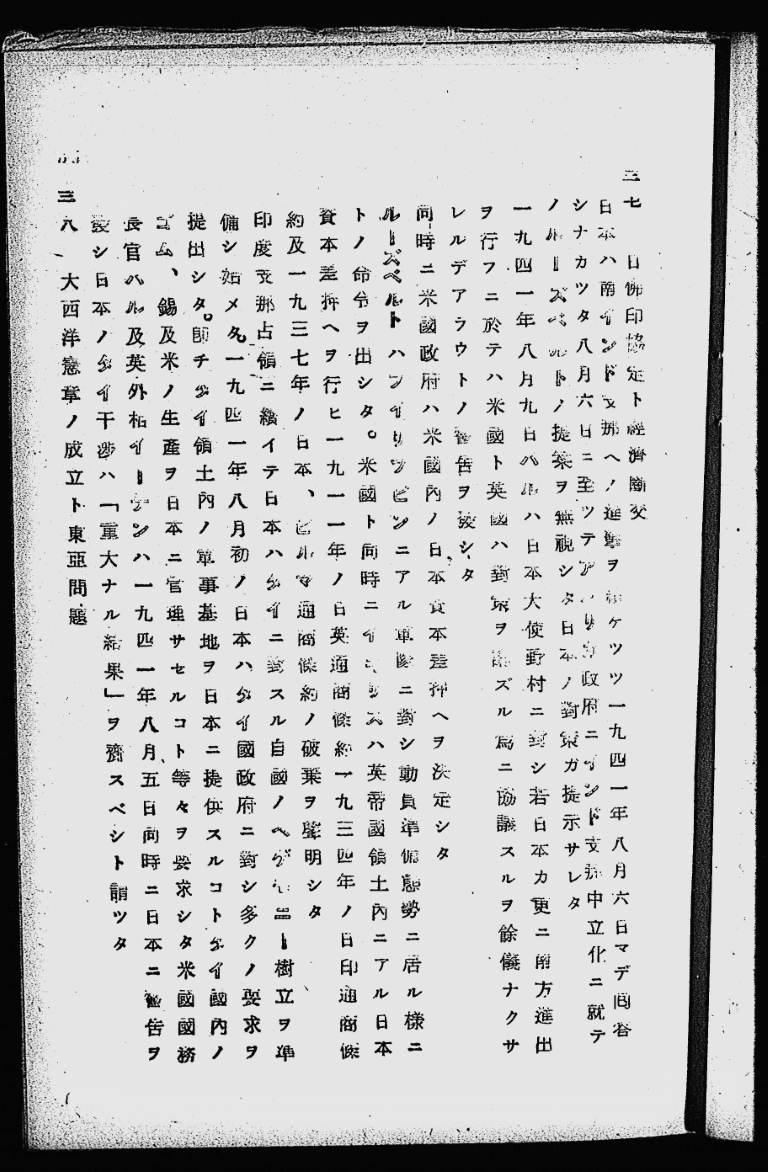 三七　日佛印協定ト經濟斷交
日本ハ南インド支那ヘノ進擊ヲ續ケツツ一九四一年八月六日マデ囘答
シナカツタ八月六日ニ至ツテアメリカ政府ニインド支那中立化ニ就テ
ノルーズベルトノ提案ヲ無視シタ日本ノ對案ガ提示サレタ
一九四一年八月九日ハルハ日本大使野村ニ對シ若日本カ更ニ南方進出
ヲ行フニ於テハ米國ト英國ハ對策ヲ講ズル爲ニ協議スルヲ餘儀ナクサ
レルデアラウトノ警告ヲ發シタ
同時ニ米國政府ハ米國內ノ日本資本差押ヘヲ決定シタ
ルーズベルトハフイリツピンニアル軍隊ニ對シ動員準備態勢ニ居ル樣ニ
トノ命令ヲ出シタ。米國ト同時ニイギリスハ英帝國領土內ニアル日本
資本差押ヘヲ行ヒ一九一一年ノ日英通商條約一九三四年ノ日印通商條
約及一九三七年ノ日本、ビルマ通商條約ノ破棄ヲ聲明シタ
印度支那占領ニ續イテ日本ハタイニ對スル自國ノヘゲモニー樹立ヲ準
備シ始メタ。一九四一年八月初ノ日本ハタイ國政府ニ對シ多クノ要求ヲ
提出シタ。卽チタイ領土內ノ軍事基地ヲ日本ニ提供スルコトタイ國內ノ
ゴム、錫及米ノ生產ヲ日本ニ管理サセルコト等々ヲ要求シタ米國國務
長官ハル及英外相イーデンハ一九四一年八月五日同時ニ日本ニ警告ヲ
發シ日本ノタイ干涉ハ「重大ナル結果」ヲ齎スベシト謂ツタ
三八、大西洋憲章ノ成立ト東亞問題